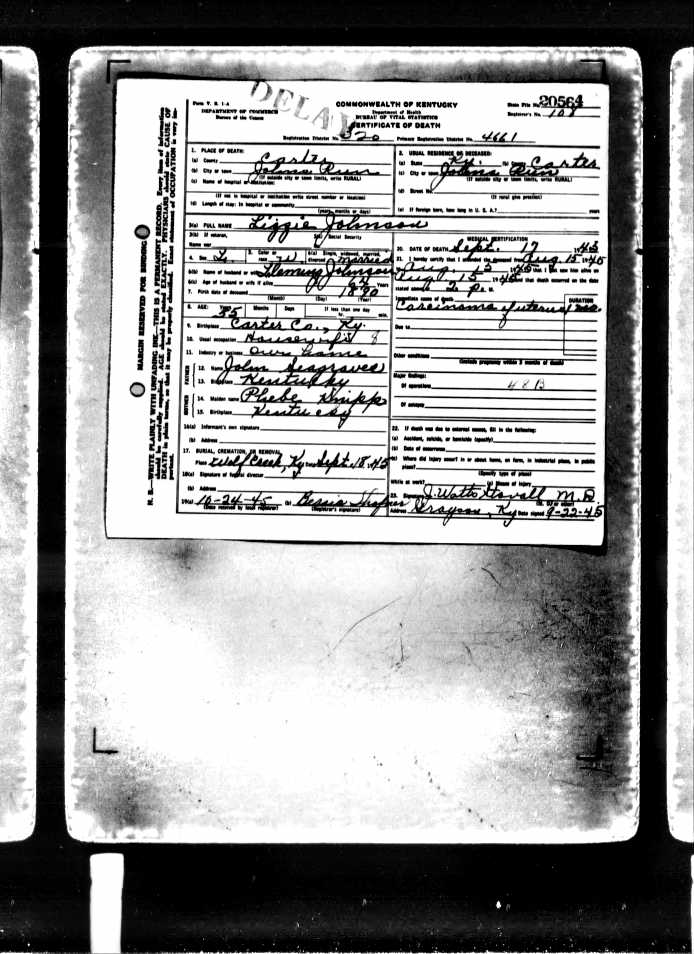 DELAY
Form V. S. 1-A
DEPARTMENT OF COMMERCE
Bureau of the Census
COMMONWEALTH OF KENTUCKY
Department of Health
BUREAU OF VITAL STATISTICS
CERTIFICATE OF DEATH
State File No. 20564
Registrar's No. 108
Registration District No. 320 Primary Registration District No. 4661
MARGIN RESERVED FOR BINDING
N. B.—WRITE PLAINLY WITH UNFADING INK—THIS IS A PERMANENT RECORD. Every item of information
should be carefully supplied. AGE should be stated EXACTLY. PHYSICIANS should state CAUSE OF
DEATH in plain terms, so that it may be properly classified. Exact statement of OCCUPATION is very im-
portant.
1. PLACE OF DEATH:
(a) County Carter
(b) City or town Johns Run
(If outside city or town limits, write RURAL)
(c) Name of hospital or institution:
(If not in hospital or institution write street number or location)
(d) Length of stay: In hospital or community
(years, months or days)
2. USUAL RESIDENCE OF DECEASED:
(a) State Ky. (b) County Carter
(c) City or town Johns Run
(If outside city or town limits, write RURAL)
(d) Street No.
(If rural give precinct)
(e) If foreign born, how long in U. S. A.? years
3(a) FULL NAME Lizzie Johnson
3(b) If veteran,
Name war
3(c) Social Security
4. Sex F. 5. Color or race W 6(a) Single, widowed, married,
divorced married
6(b) Name of husband or wife Fleming Johnson
6(c) Age of husband or wife if alive 62 Years
7. Birth date of deceased 1890
(Month) (Day) (Year)
8. AGE: 55 Months Days If less than one day
hr. min.
9. Birthplace Carter Co., Ky.
10. Usual occupation Housewife 8
11. Industry or business Own home
FATHER
12. Name John Seagraves
13. Birthplace Kentucky
MOTHER
14. Maiden name Phebe Knipp
15. Birthplace Kentucky
16(a) Informant's own signature
(b) Address
17. BURIAL, CREMATION, OR REMOVAL
Place Wolf Creek, Ky Date Sept. 18, 45
18(a) Signature of funeral director
(b) Address
19(a) 10-24-45 (b) Bessie
(Date received by local registrar) (Registrar's signature)
MEDICAL CERTIFICATION
20. DATE OF DEATH Sept. 17 1945
21. I hereby certify that I attended the deceased from Aug. 15 1945
Aug. 15 1945 that I last saw her alive on
Aug 15 1945 and that death occurred on the date
stated above at 2 P. m.
Immediate cause of death
DURATION
Carcinoma of uterus
Due to
Other conditions
(Include pregnancy within 3 months of death)
Major findings:
Of operations 48B
Of autopsy
22. If death was due to external causes, fill in the following:
(a) Accident, suicide, or homicide (specify)
(b) Date of occurrence
(c) Where did injury occur? in or about home, on farm, in industrial place, in public
place?
(Specify type of place)
While at work? (e) Means of injury
23. Signature J. Watts Stovall M.D.
(M. D. or other)
Address Grayson, Ky Date signed 9-22-45